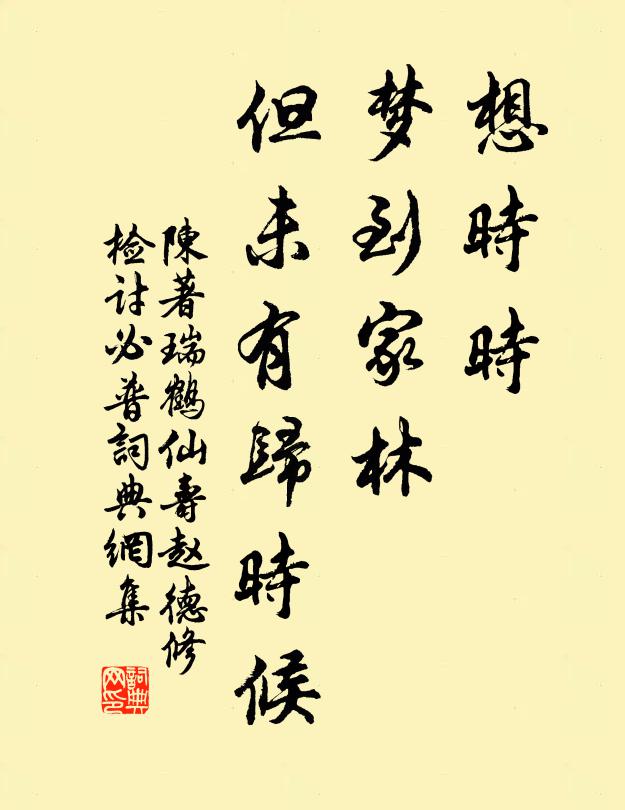 想時時
梦到家林
但未有歸時候
陳著瑞鶴仙壽赵德修
检討必普詞典網集
詞典网印